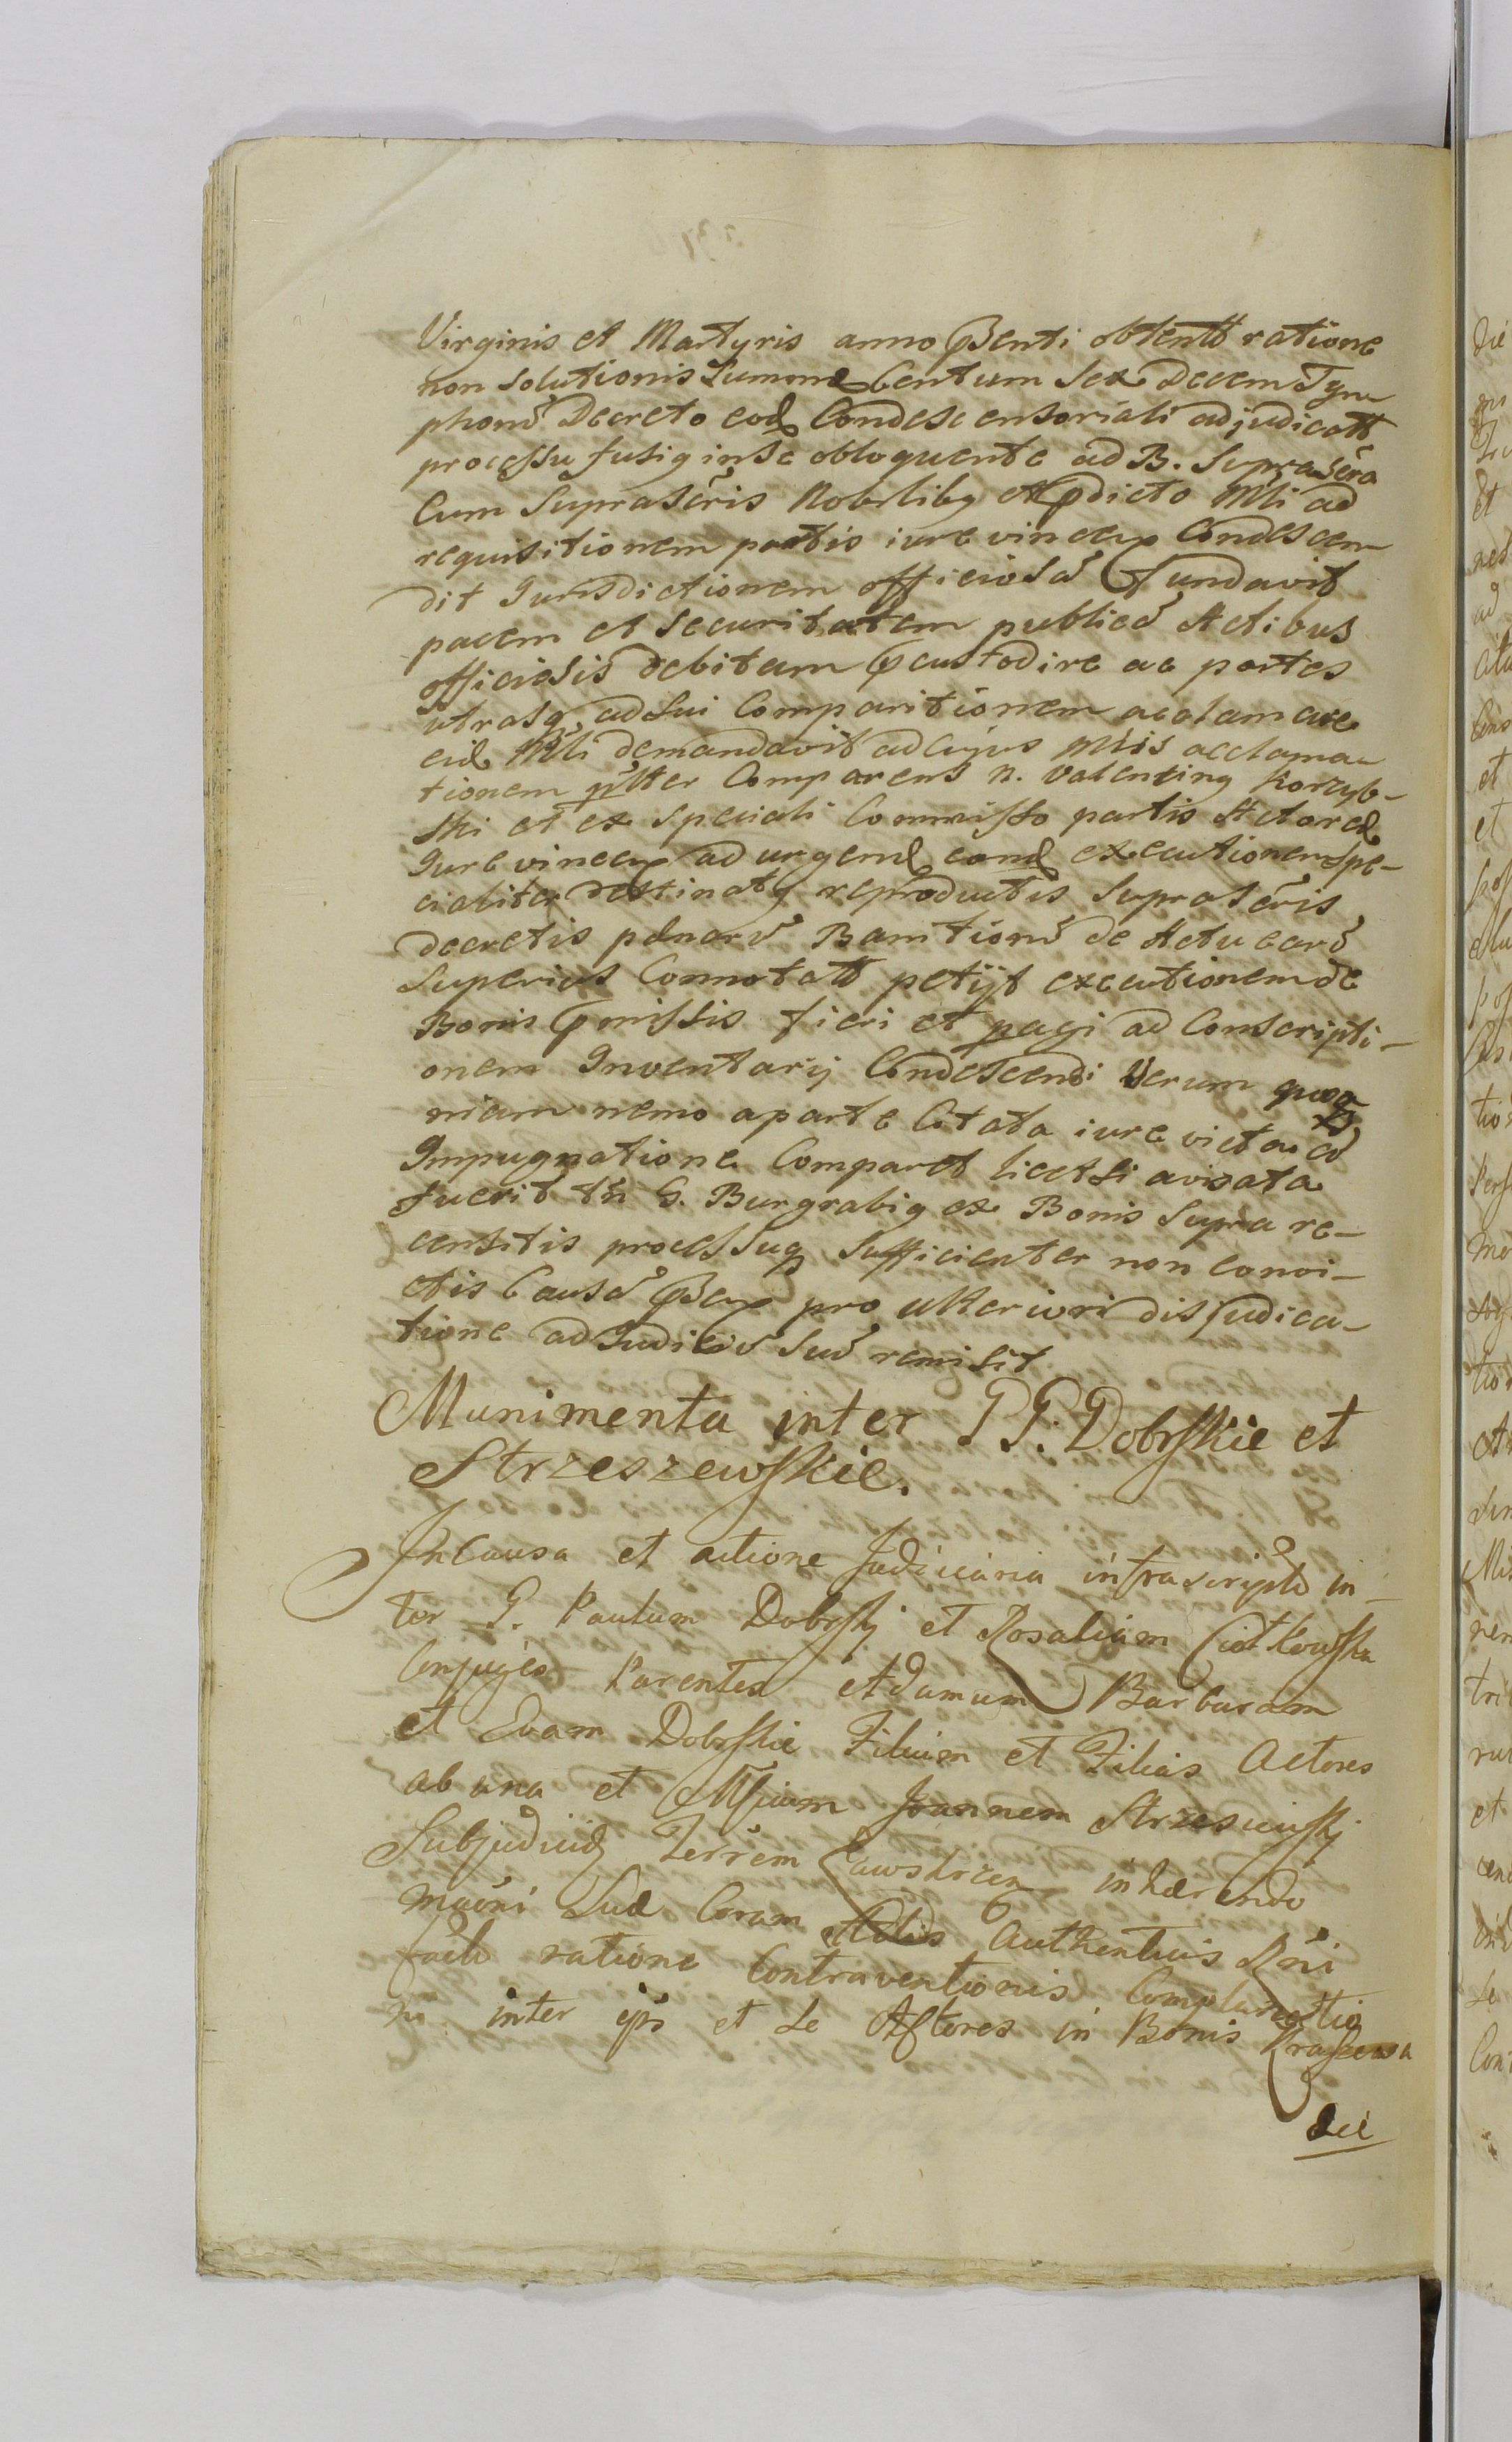 Virginis et Martyris anno pnti obtentã ratione
non Solutionis Summæ Centum Sex Decem Tym
phonũ Decreto eod Condescensoriali adjudicatã
processu fusiq inse obloquente ad B. Suprascra
Cum Suprascris Nobiliby et pdicto Mli ad
requisitionem partis iure vincen Condescen
dit Jurisdictionem officiosã fundavit
pacem et Securitatem publicã Actibus
officiosis debitam pcustodire ac partes
utrasq ad Sui Comparitionem acclamare
eid Mli demandavit ad cujus Mlis acclama
tionem pltter Comparens N. Valentiny Korzyb-
ski et ex Speciali Commisso partis Actoreæ
Jure vincen ad urgend eand executionem Spe-
cialiter destinaty reproductis Suprascris
decretis pænarũ Banitionũ de Actu earũ
Superius Connotatã petijt executionem de
Bonis pmissis fieri et pagi ad Conscripti-
onem Inventarij Condescendi Verum quo
niam nemo a parte Citata iure victa ad
Impugnatione Comparet licet Si avisata
fuerit tñ G. Burgrabiq ex Bonis Supra re-
censitis processuq Sufficienter non convi-
ctis Causã pntem pro ulteriori disjudica-
tione ad Judiciũ Suũ remisit
Munimenta inter GG. Dobrskie et
Strzeszewskie.
In Causa et actione Judiciaria infrascripta in-
ter G. Paulum Dobrskj et Rosaliam Ciotkowska
Conjuges Parentes et Adamum Barbaram
et Evam Dobrskie Filium et Filias Actores
ab una et Mficum Joannem Strzeszewskj
Subjudicem Terrem Zawskrzen inhærendo
mañi Suæ Coram Actis Authenticis Rñi
factæ ratione Contraventionis Complanatio
ni inter ips et se Actores in Bonis
die